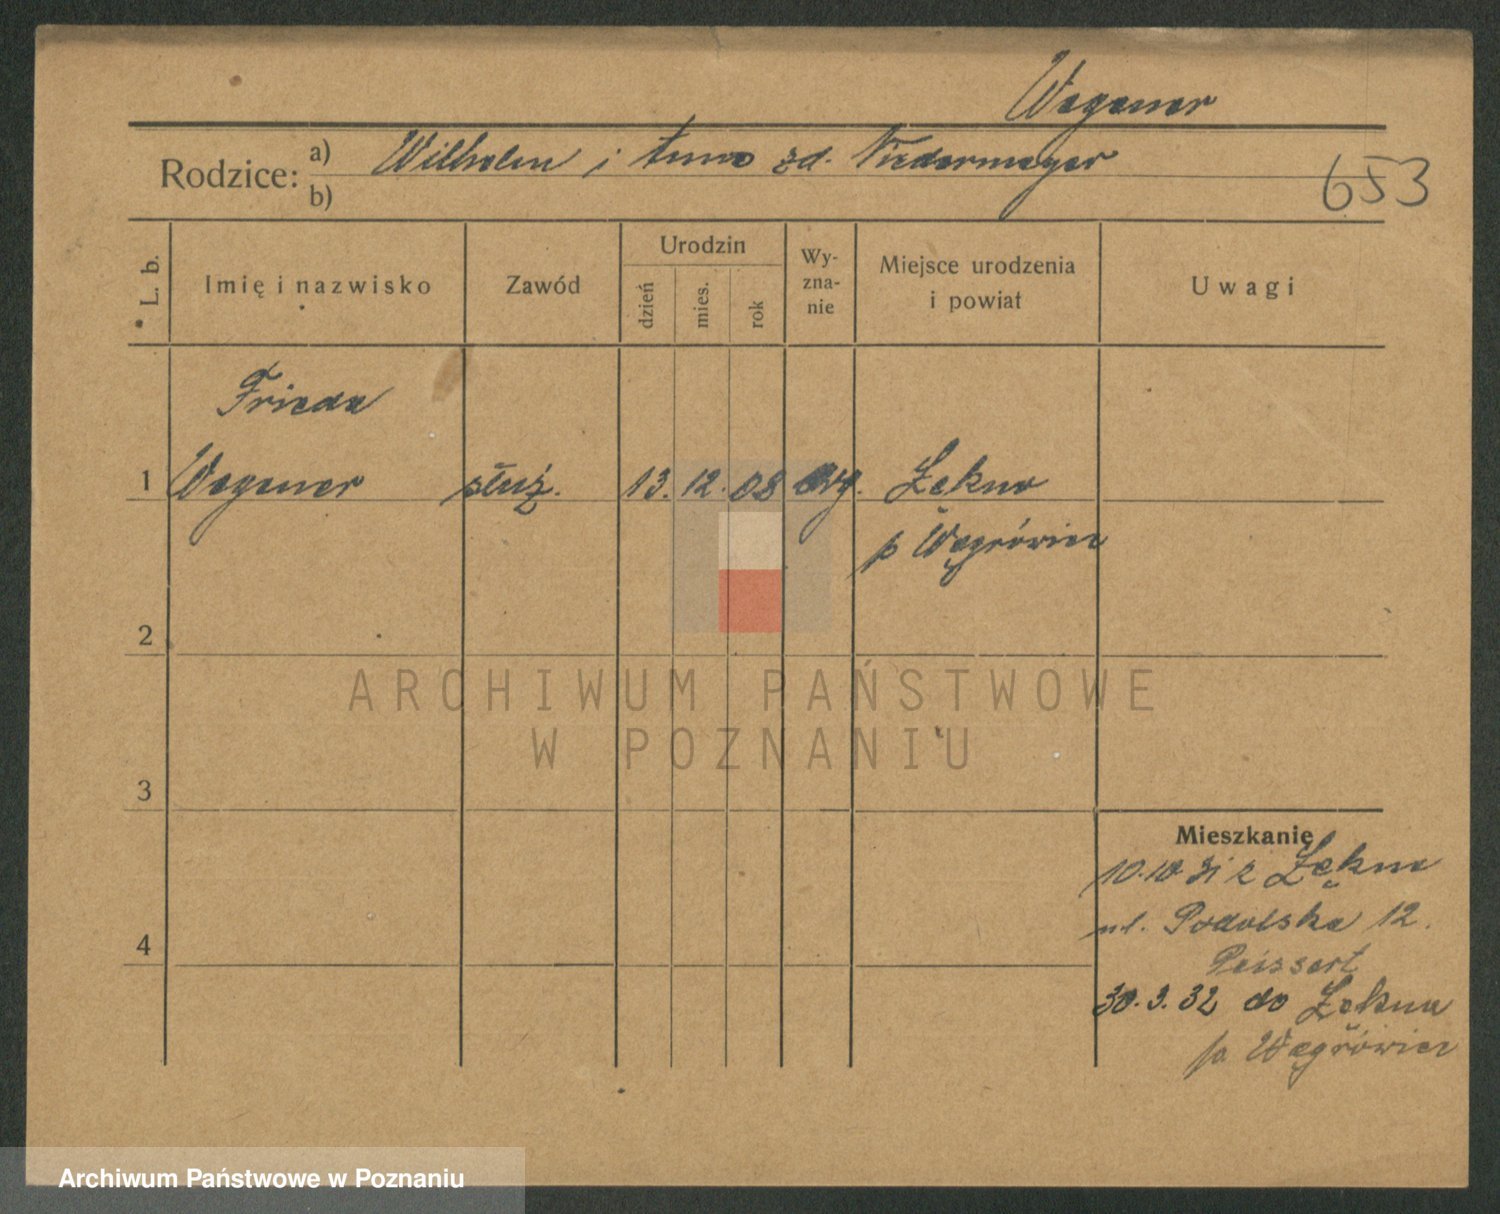 Wegener
Rodzice: a) Wilhelm i Anna zd. Niedermeyer
b)
653
L. b.
Imię i nazwisko
Zawód
Urodzin
dzień
mies.
rok
Wy-
zna-
nie
Miejsce urodzenia
i powiat
Uwagi
Frieda
1 Wegener służ. 13. 12. 08 Łekno
p Wągrówiec
2
ARCHIWUM PAŃSTWOWE
W POZNANIU
3
Mieszkanie
10.10 31 z Łękna
ul. Podolska 12.
4
Peissert
30.3.32 do Łekna
pa Wągrówiec
Archiwum Państwowe w Poznaniu